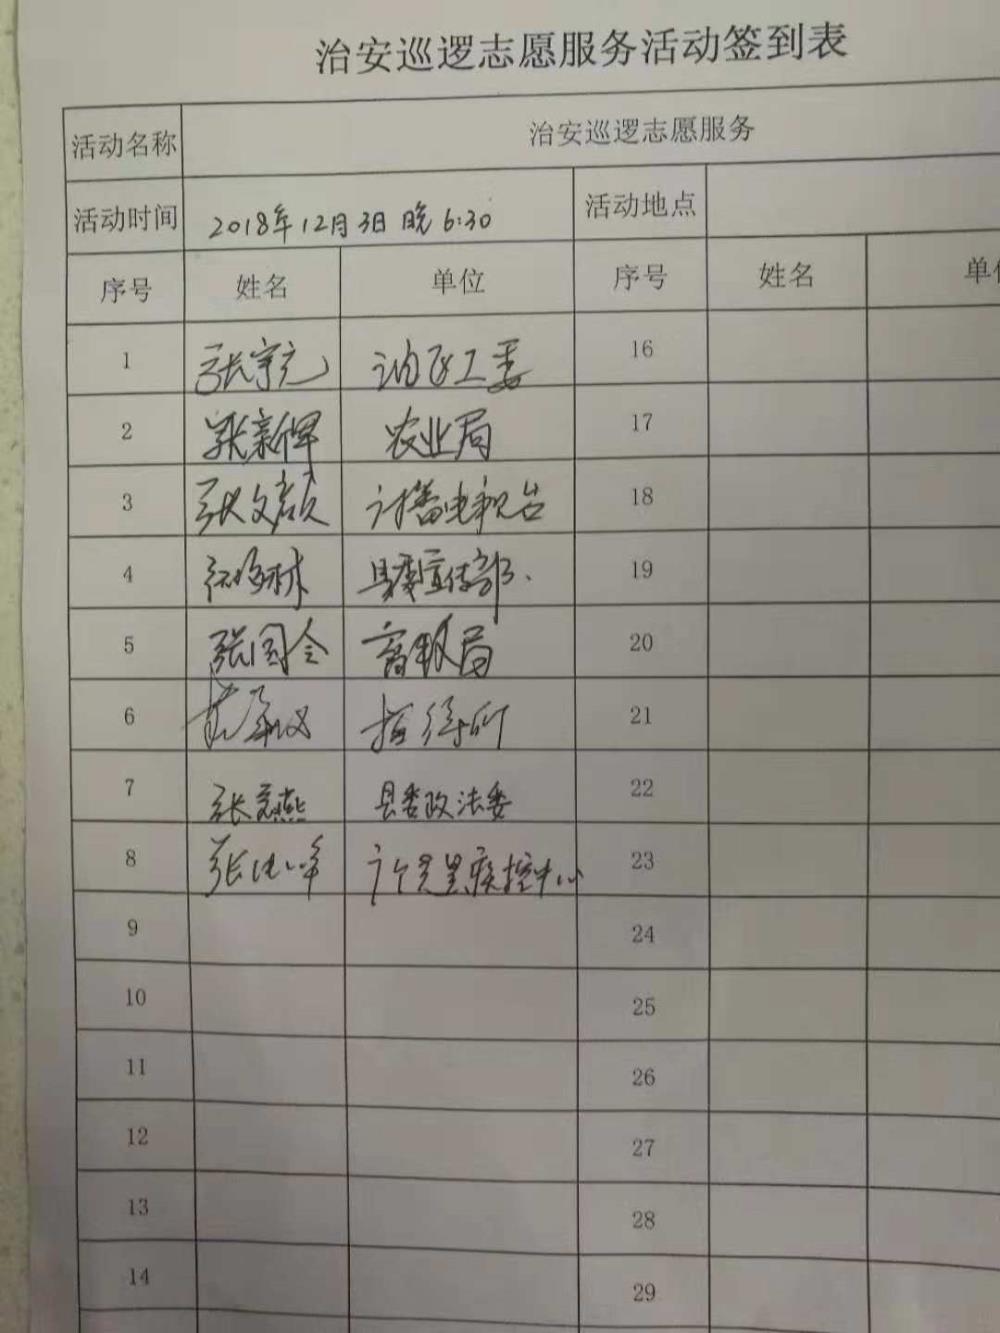 治安巡逻志愿服务活动签到表
活动名称 治安巡逻志愿服务
活动时间 2018年12月3日 晚 6:30 活动地点
序号 姓名 单位 序号 姓名 单
1 工委 16
2 张新 农业局 17
3 张文 播电视台 18
4 林 县委宣传部. 19
5 张国 局 20
6 所 21
7 张燕 县委政法委 22
8 张 疾控中心 23
9 24
10 25
11 26
12 27
13 28
14 29